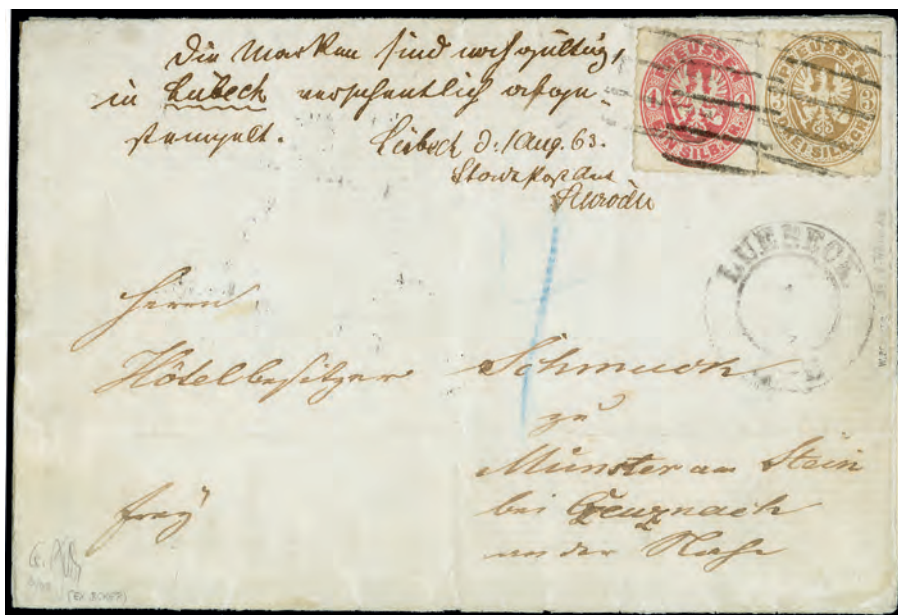 Die Marken sind noch gültig,
in Lübeck versehentlich abge-
stempelt.
Lübeck d. 1 Aug. 63.
Stadtpostamt
PREUSSEN
EIN SILB.GR.
1 1
PREUSSEN
DREI SILB.GR.
3 3
LUEBECK
Herrn
Hôtelbesitzer Schmuck
zu
Münster am Stein
bei Creuznach
an der Nahe
frey
(EX BOKER)